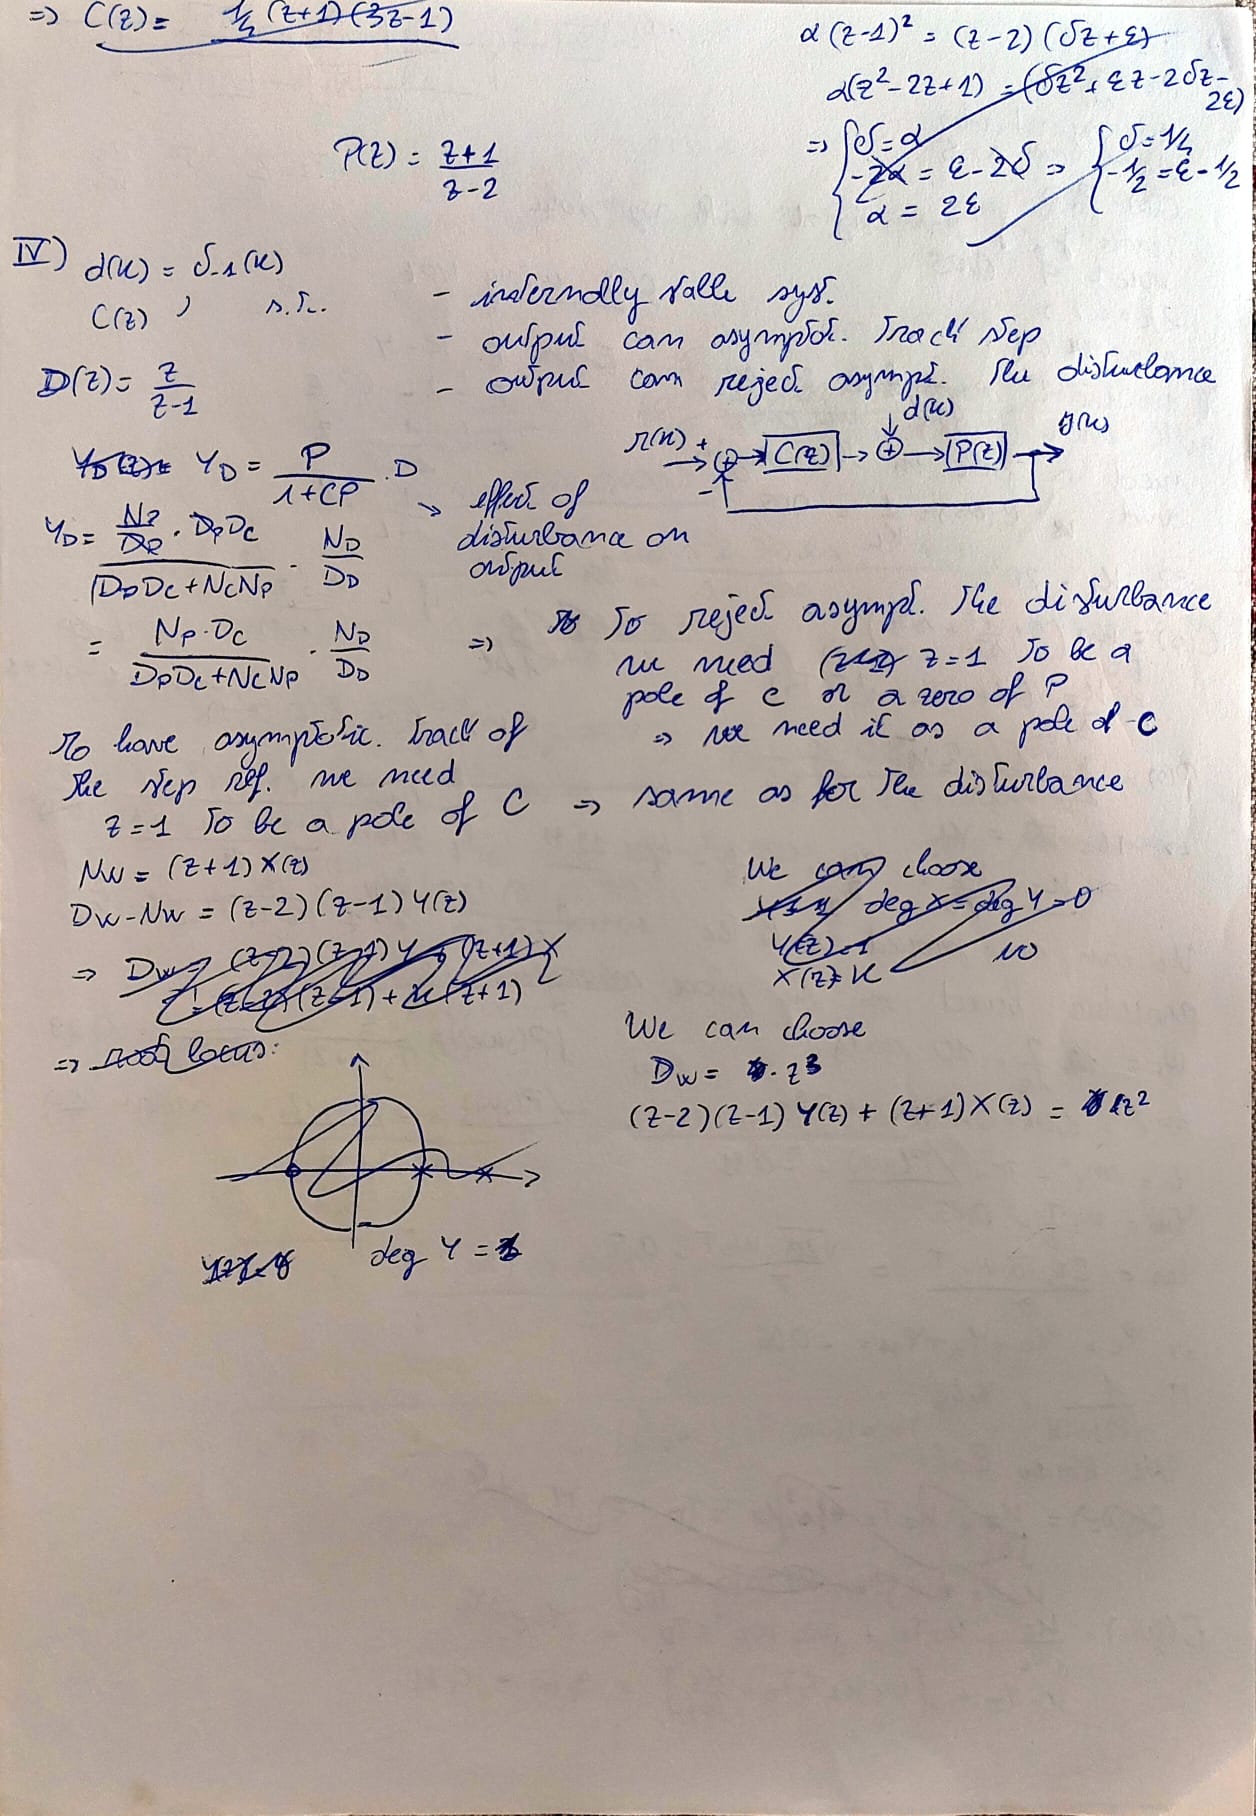 => C(z) = 1/2 (z+1)(3z-1)
α(z-1)² = (z-2)(δz+ε)
α(z²-2z+1) = (δz²+εz-2δz-2ε)
=> { δ=α
-2α = ε-2δ =>
α = 2ε
{ δ=1/2
-1/2 = ε-1/2
P(z) = z+1 / z-2
IV) d(k) = δ₋₁(k)
C(z), s.t.
- internally stable syst.
- output can asymptot. track step
- output can reject asympt. the disturbance
D(z) = z / z-1
r(k) + - C(z) d(k) P(z) y(k)
Y_D = P / 1+CP · D
-> effect of disturbance on output
Y_D = N_P/D_P · D_P D_C / D_P D_C + N_C N_P · N_D / D_D
= N_P · D_C / D_P D_C + N_C N_P · N_D / D_D =>
To reject asympt. the disturbance
we need z=1 to be a
pole of C or a zero of P
=> we need it as a pole of C
to have asymptotic. track of
the step ref. we need
z=1 to be a pole of C => same as for the disturbance
N_W = (z+1) X(z)
D_W - N_W = (z-2)(z-1) Y(z)
=> D_W = (z-2)(z-1) Y + (z+1) X
= (z-2)(z-1) + k(z+1)
=> root locus:
We can choose
deg X = deg Y = 0
Y(z)=1
X(z)=k
NO
We can choose
D_W = z³
(z-2)(z-1) Y(z) + (z+1) X(z) = z²
deg Y =